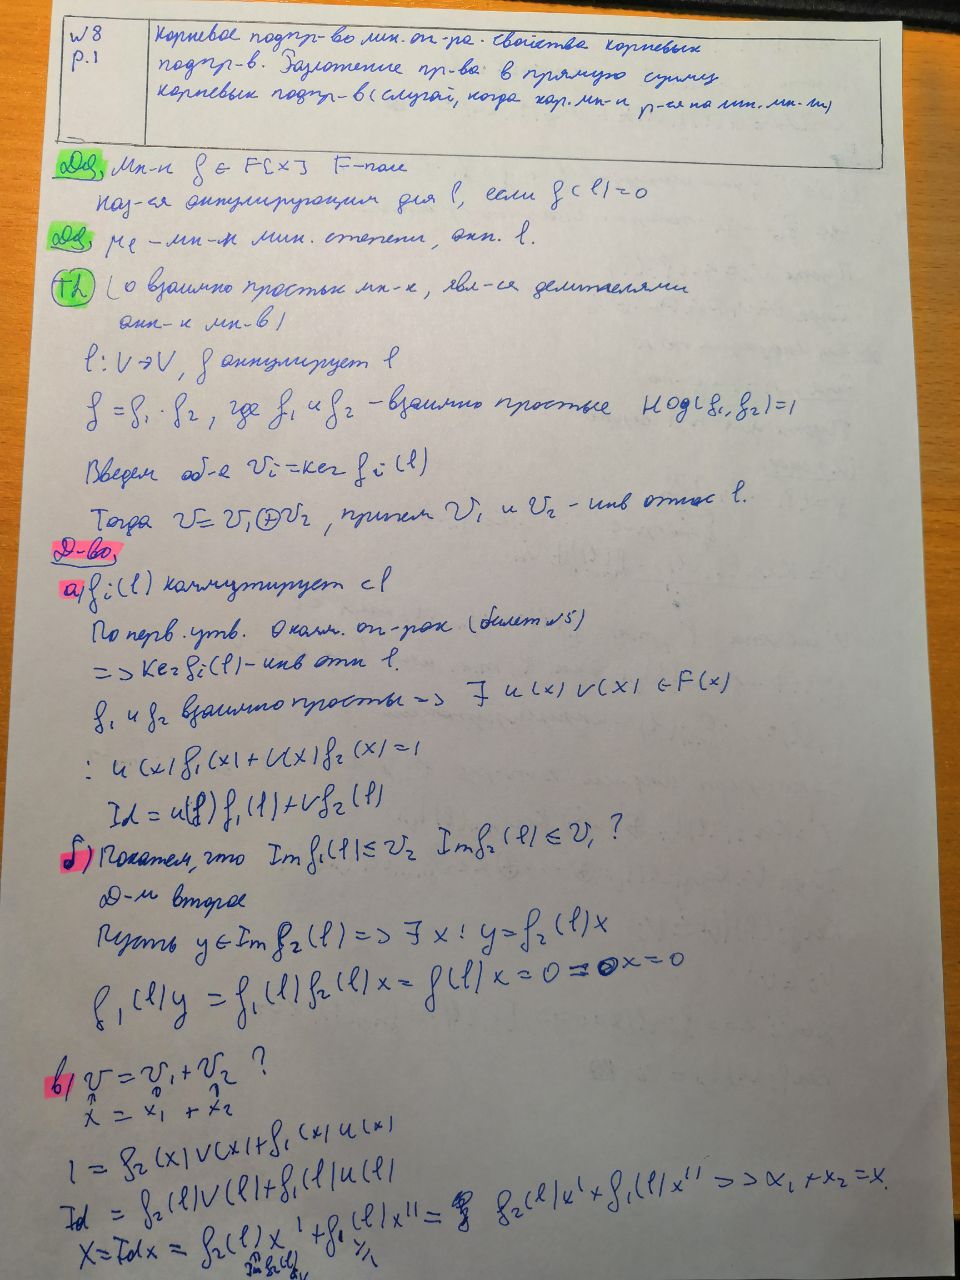 №8
р.1
Корневое подпр-во лин. оп-ра. Свойства корневых
подпр-в. Разложение пр-ва в прямую сумму
корневых подпр-в (случай, когда хар. мн-н р-ся на лин. мн-ли)
Мн-н f ∈ F[x] F-поле
наз-ся аннулирующим для l, если f(l)=0
μl – мн-н мин. степени, анн. l.
Th (о взаимно простых мн-х, явл-ся делителями
анн-х мн-в)
l: V→V, f аннулирует l
f = f₁ · f₂, где f₁ и f₂ – взаимно простые НОД(f₁, f₂)=1
Введем об-е Vi = ker fi(l)
Тогда V = V₁⊕V₂, причем V₁ и V₂ – инв относ l.
Д-во,
а) fi(l) коммутирует с l
По перв. утв. о комм. оп-рах (билет №5)
=> Ker fi(l) – инв отн l.
f₁ и f₂ взаимно просты => ∃ u(x) v(x) ∈ F(x)
: u(x)f₁(x) + v(x)f₂(x) = 1
Id = u(l) f₁(l) + v f₂(l)
б) Покажем, что Im f₁(l) ≤ V₂ Im f₂(l) ≤ V₁ ?
Д-м второе
Пусть y ∈ Im f₂(l) => ∃ x : y = f₂(l)x
f₁(l)y = f₁(l)f₂(l)x = f(l)x = 0 = 0x = 0
в) V = V₁ + V₂ ?
x = x₁ + x₂
1 = f₂(x)v(x) + f₁(x)u(x)
Id = f₂(l)v(l) + f₁(l)u(l)
X = Id x = f₂(l)x' + f₁(l)x'' = f₂(l)x' + f₁(l)x'' => x₁ + x₂ = x.
Im f₂(l)